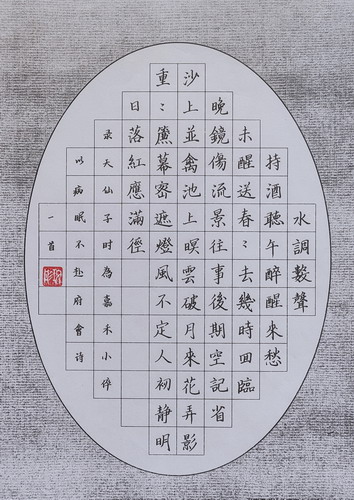 水調數聲
持酒聽午醉醒來愁
未醒送春〻去幾時回臨
晚鏡傷流景往事後期空記省
沙上並禽池上暝雲破月來花弄影
重〻簾幕密遮燈風不定人初靜明
日落紅應滿徑
录天仙子时為嘉禾小倅
以病眠不赴府會诗
一首